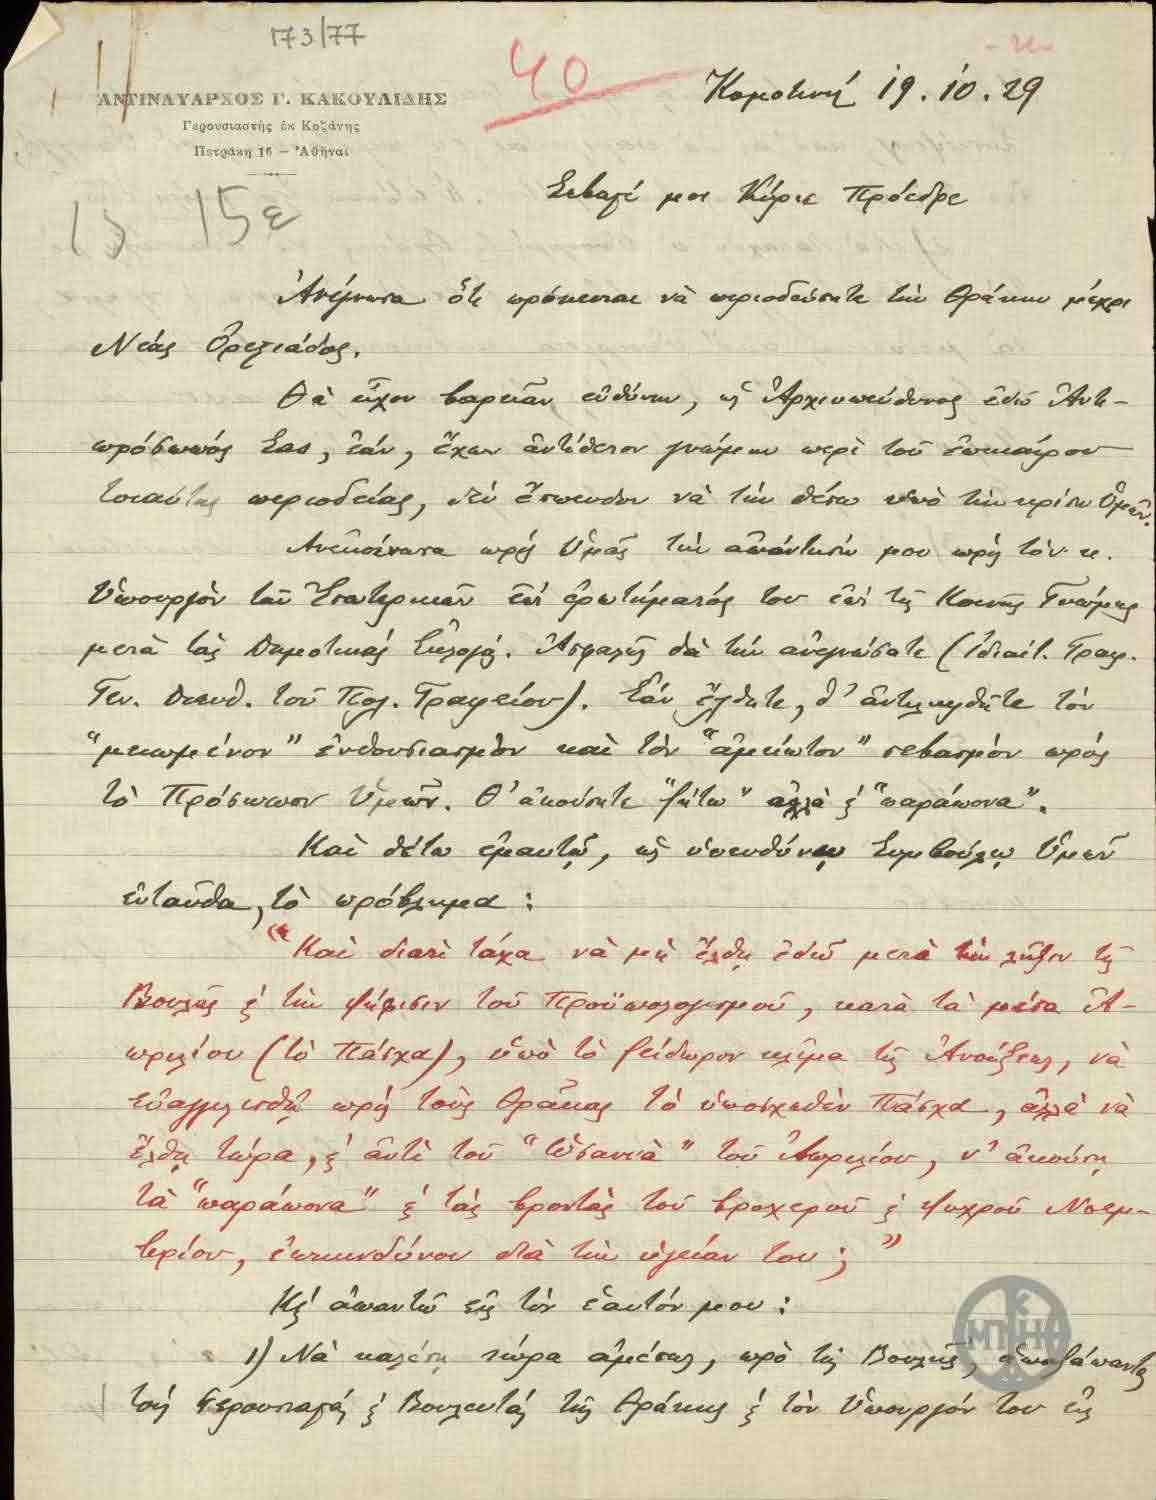 173/77
40
ΑΝΤΙΝΑΥΑΡΧΟΣ Γ. ΚΑΚΟΥΛΙΔΗΣ
Γερουσιαστὴς ἐκ Κοζάνης
Πετράκη 16 – Ἀθῆναι
Κομοτινή 19.10.29
15ε
Σεβαστέ μοι Κύριε Πρόεδρε
Ἀνέγνωσα ὅτι πρόκειται νὰ περιοδεύσητε τὴν Θράκην μέχρι
Νέας Ὀρεστιάδος.
Θὰ εἶχον βαρεῖαν εὐθύνην, ὡς Ἀρχιυπεύθυνος ἐδῶ Ἀντι-
πρόσωπός Σας, ἐάν, ἔχων ἀντίθετον γνώμην περὶ τοῦ ἐπικαίρου
τοιαύτης περιοδείας, δὲν ἔσπευδον νὰ τὴν θέσω ὑπὸ τὴν κρίσιν Ὑμῶν.
Ἀνεκοίνωσα πρὸς Ὑμᾶς τὴν ἀπάντησίν μου πρὸς τὸν κ.
Ὑπουργὸν τῶν Ἐσωτερικῶν ἐπὶ ἐρωτήματός του ἐπὶ τῆς Κοινῆς Γνώμης
μετὰ τὰς Δημοτικὰς Ἐκλογάς. Ἀσφαλῶς θὰ τὴν ἀνεγνώσατε (Ἰδιαίτ. Γραφ.
Γεν. Διευθ. τοῦ Πολ. Γραφείου). Ἐὰν ἔλθητε, θ' ἀντιληφθῆτε τὸν
"μειωμένον" ἐνθουσιασμὸν καὶ τὸν "ἀμείωτον" σεβασμὸν πρὸς
τὸ Πρόσωπον Ὑμῶν. Θ' ἀκούσητε "ζήτω" ἀλλὰ κ "παράπονα".
Καὶ θέτω ἐμαυτῷ, ὡς ὑπευθύνῳ Συμβούλῳ Ὑμῶν
ἐνταῦθα, τὸ πρόβλημα:
"Καὶ διατὶ τάχα νὰ μὴ ἔλθῃ ἐδῶ μετὰ τὴν λῆξιν τῆς
Βουλῆς κ τὴν ψήφισιν τοῦ Προϋπολογισμοῦ, κατὰ τὰ μέσα Ἀ-
πριλίου (τὸ Πάσχα), ὑπὸ τὸ ζείδωρον κλῖμα τῆς Ἀνοίξεως, νὰ
εὐαγγελισθῇ πρὸς τοὺς Θρᾷκας τὸ ὑποσχεθὲν Πάσχα, ἀλλὰ νὰ
ἔλθῃ τώρα, κ ἀντὶ τοῦ "Ὡσαννὰ" τοῦ Ἀπριλίου, ν' ἀκούσῃ
τὰ "παράπονα" κ τὰς βροντὰς τοῦ βροχεροῦ κ ψυχροῦ Νοεμ-
βρίου, ἐπικινδύνου διὰ τὴν ὑγείαν του;"
Κι' ἀπαντῶ εἰς τὸν ἑαυτόν μου:
1) Νὰ καλέσῃ τώρα ἀμέσως, πρὸ τῆς Βουλῆς, ἅπαξάπαντας
τοὺς Γερουσιαστὰς κ Βουλευτὰς τῆς Θράκης κ τὸν Ὑπουργόν του εἰς